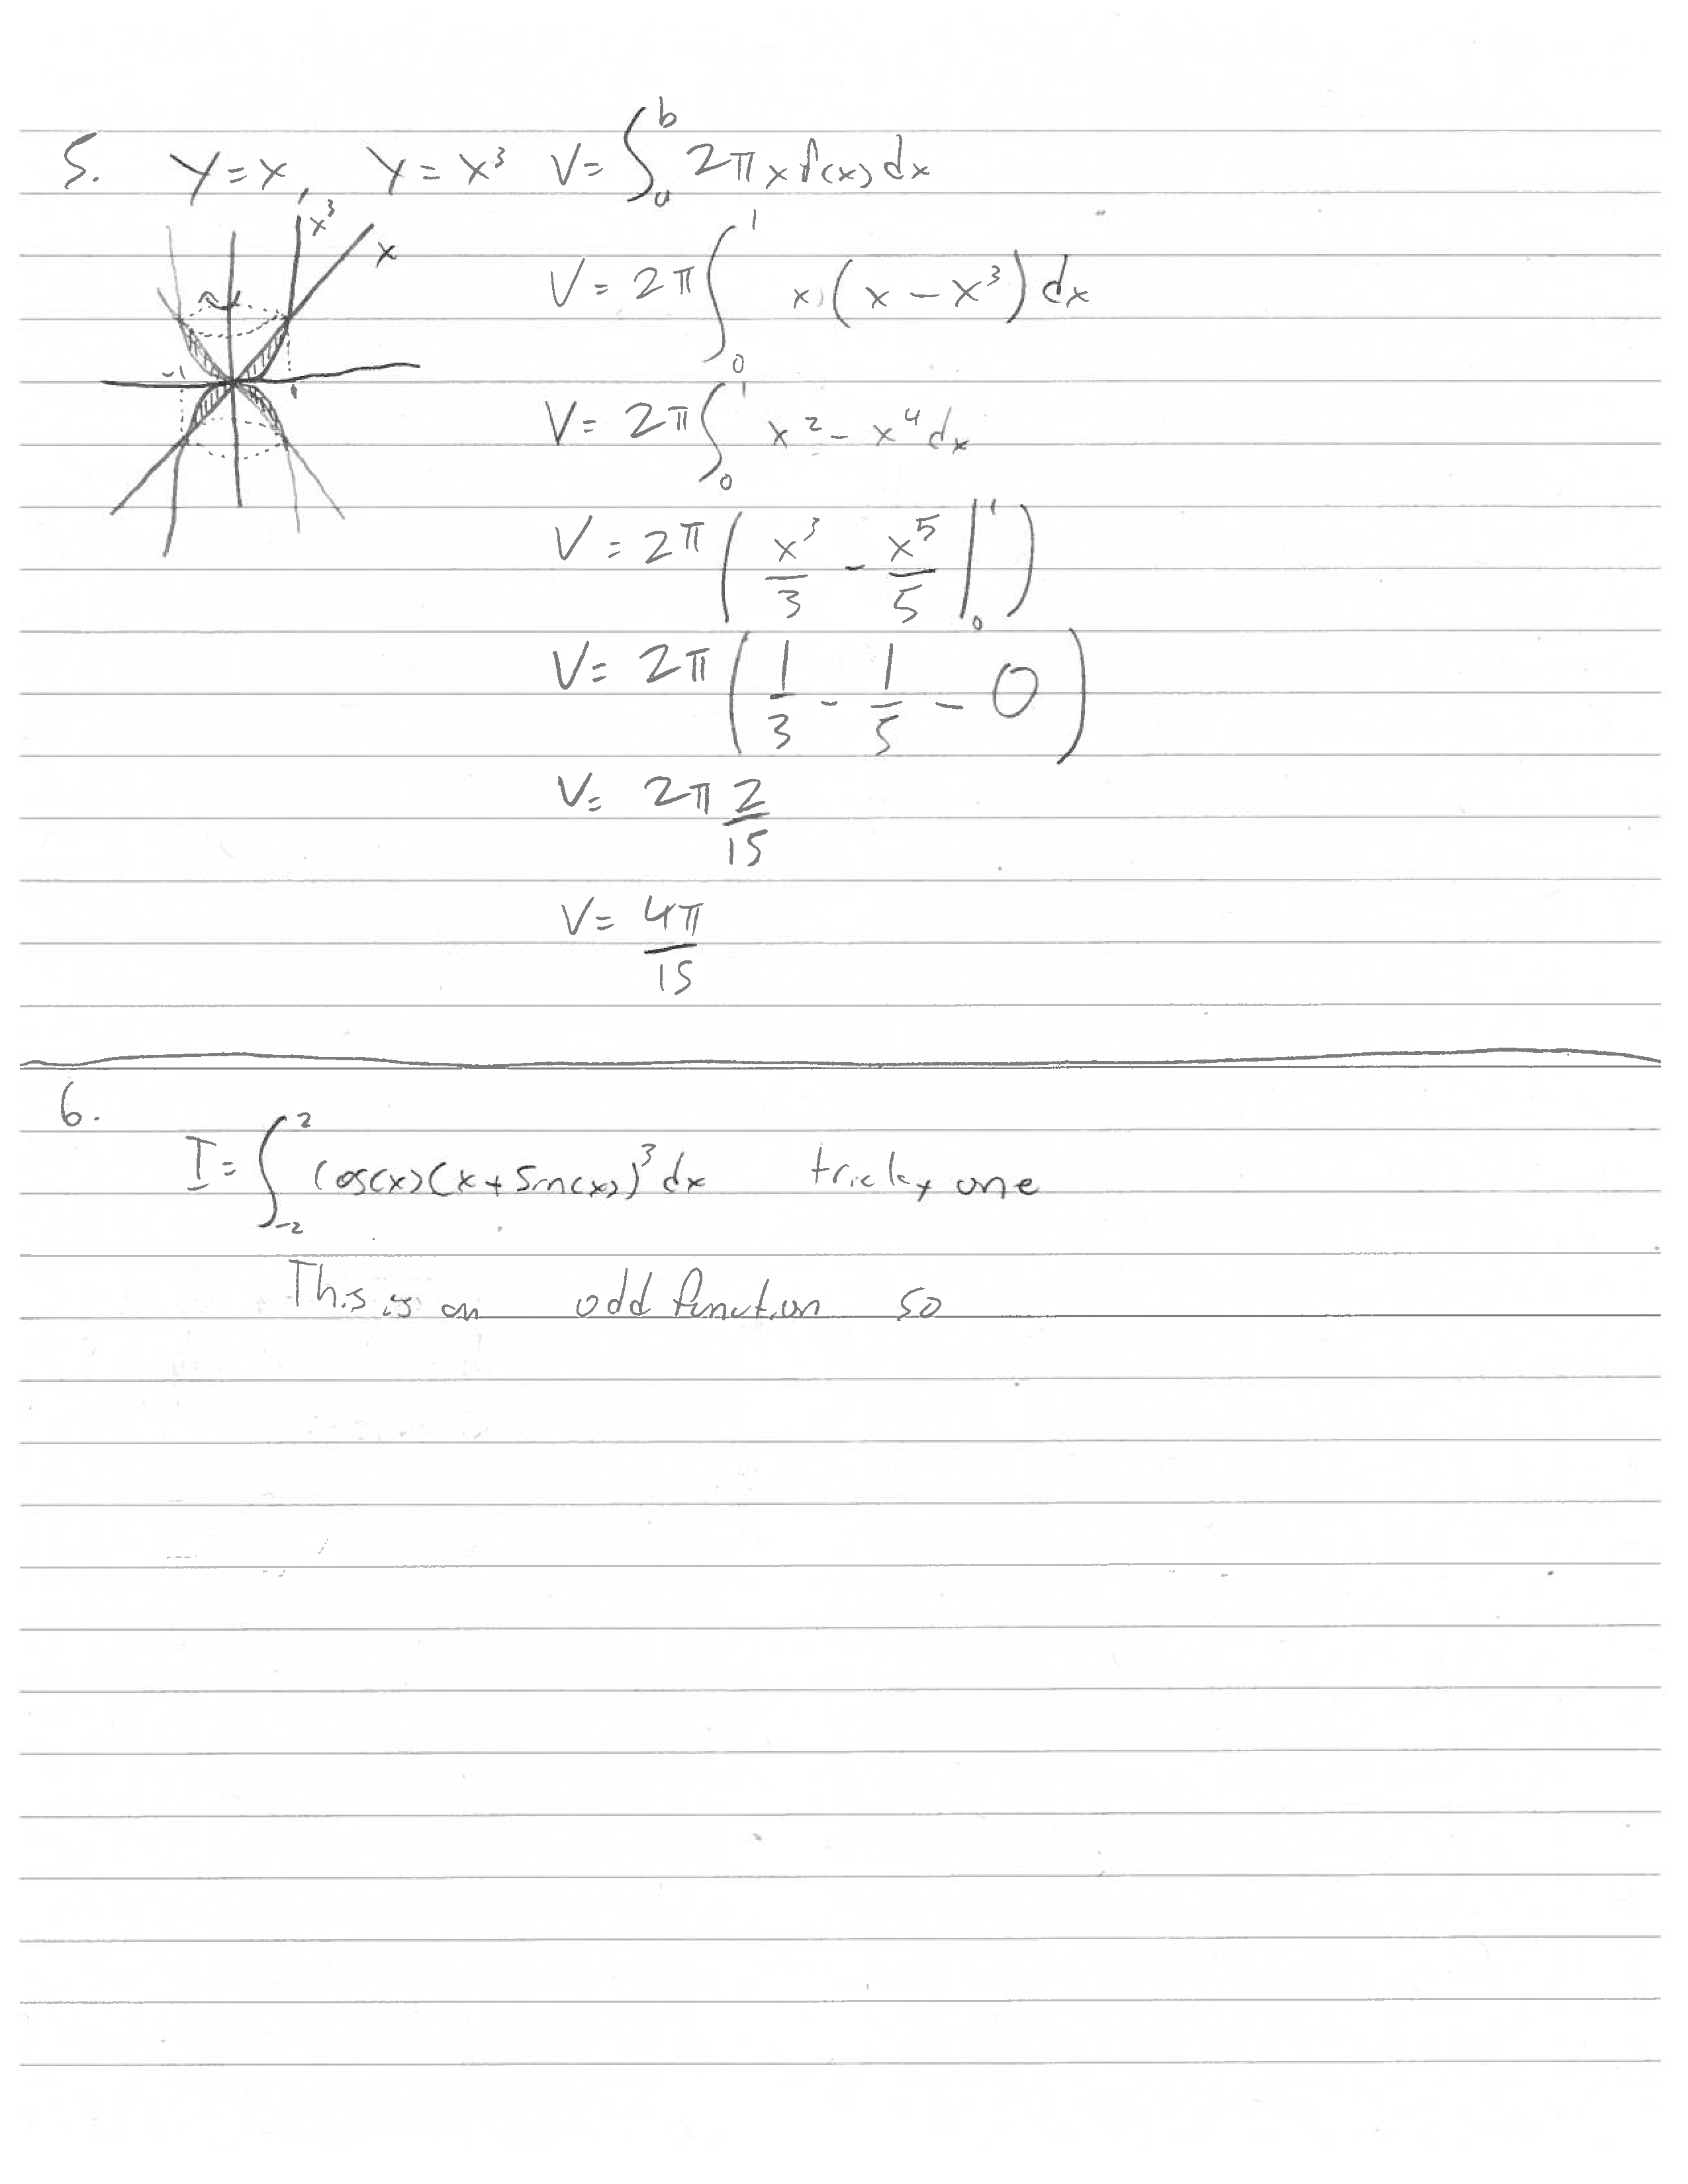 5. y=x, y=x³ V=∫ₐᵇ 2πx f(x) dx
x³
x
-1
1
V=2π∫₀¹ x(x-x³)dx
V=2π∫₀¹ x²-x⁴dx
V=2π(x³/3 - x⁵/5 |₀¹)
V=2π(1/3 - 1/5 - 0)
V=2π 2/15
V=4π/15
6.
I=∫₋₂² cos(x)(x+sin(x))³dx tricky one
This is an odd function so